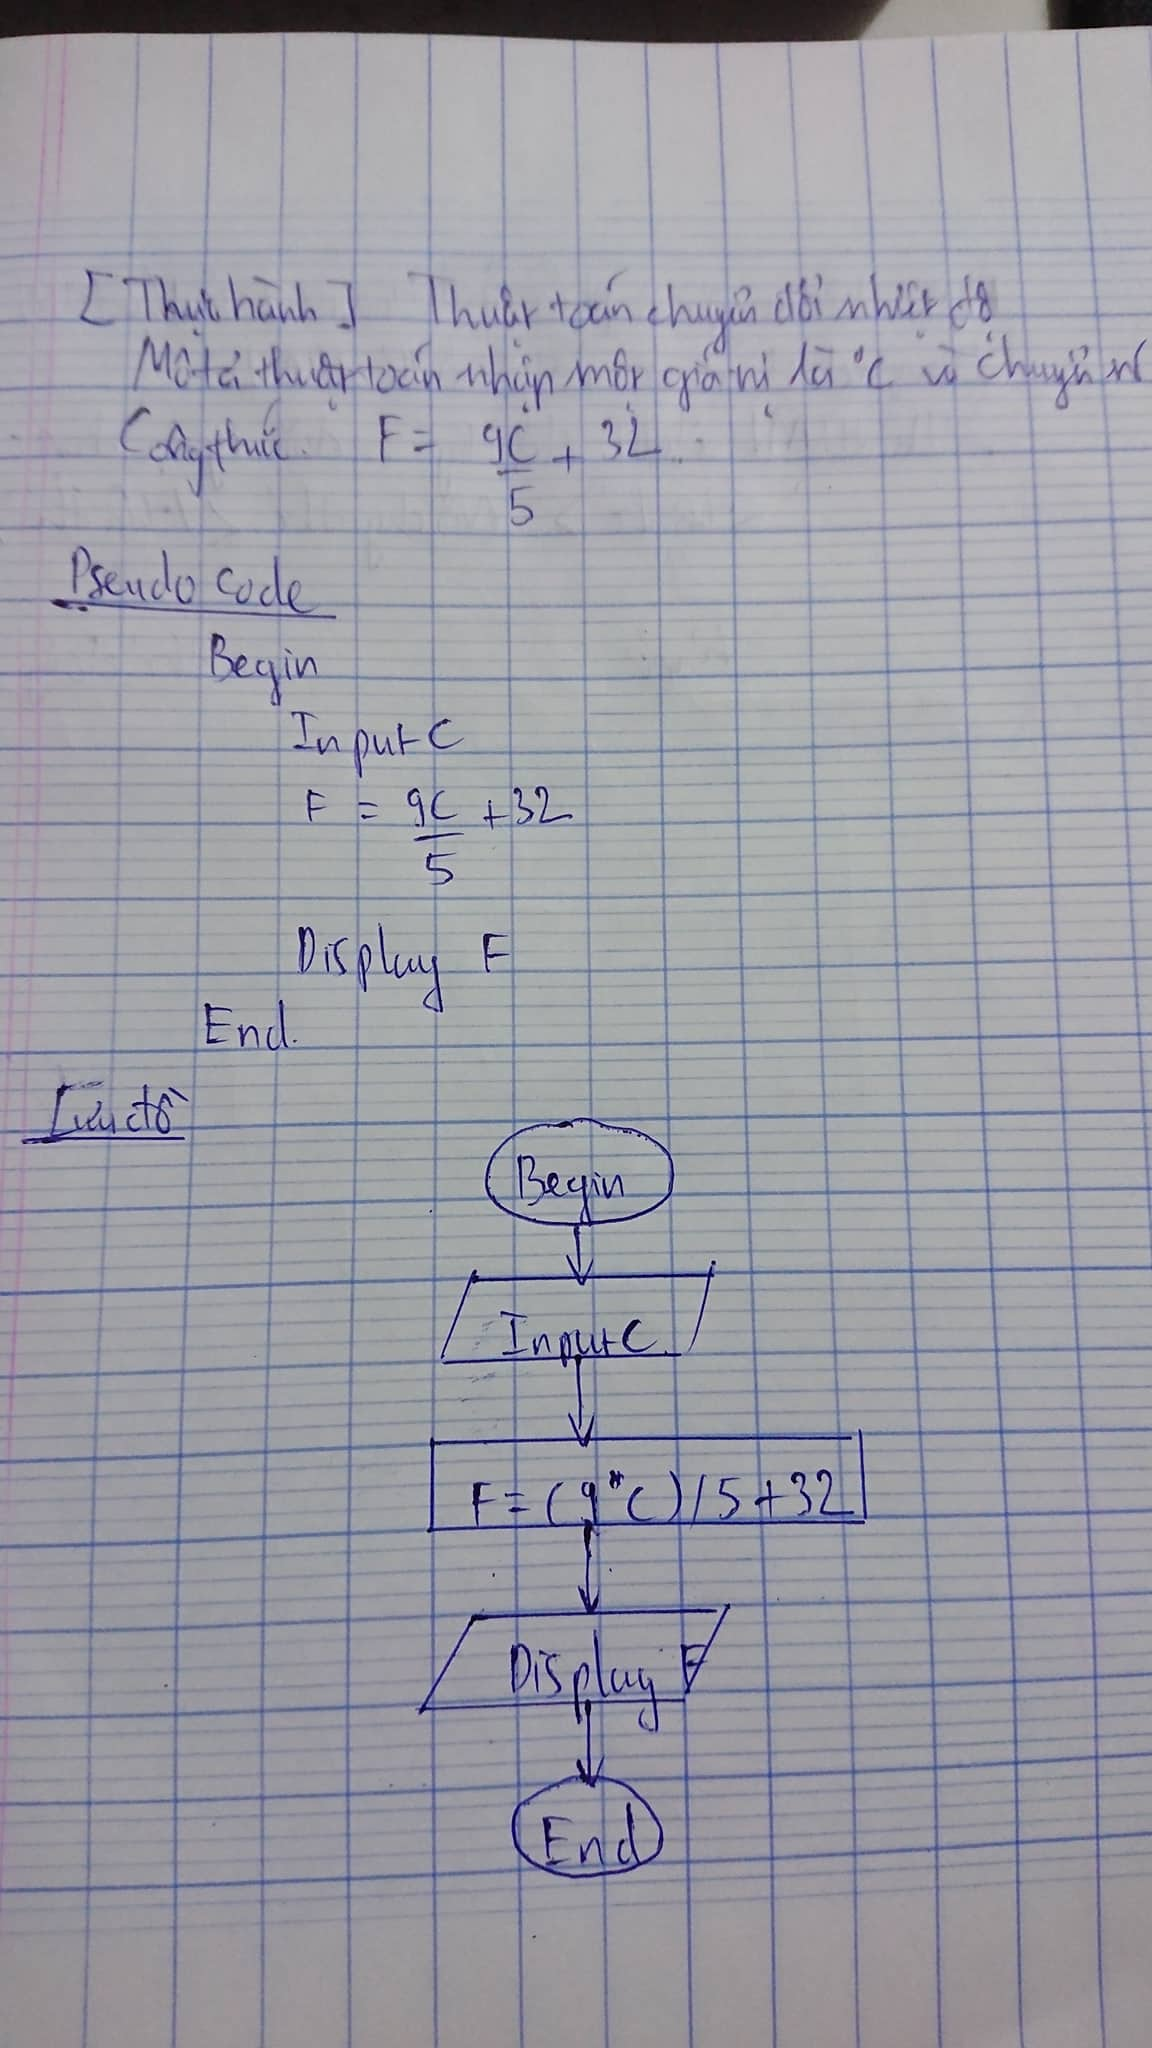 [Thực hành] Thuật toán chuyển đổi nhiệt độ
Mô tả thuật toán nhập một giá trị là °C và chuyển
Công thức. F = 9C/5 + 32.
Pseudo code
Begin
Input C
F = 9C/5 + 32
Display F
End.
Lưu đồ
Begin
Input C
F = (9*C)/5+32
Display F
End